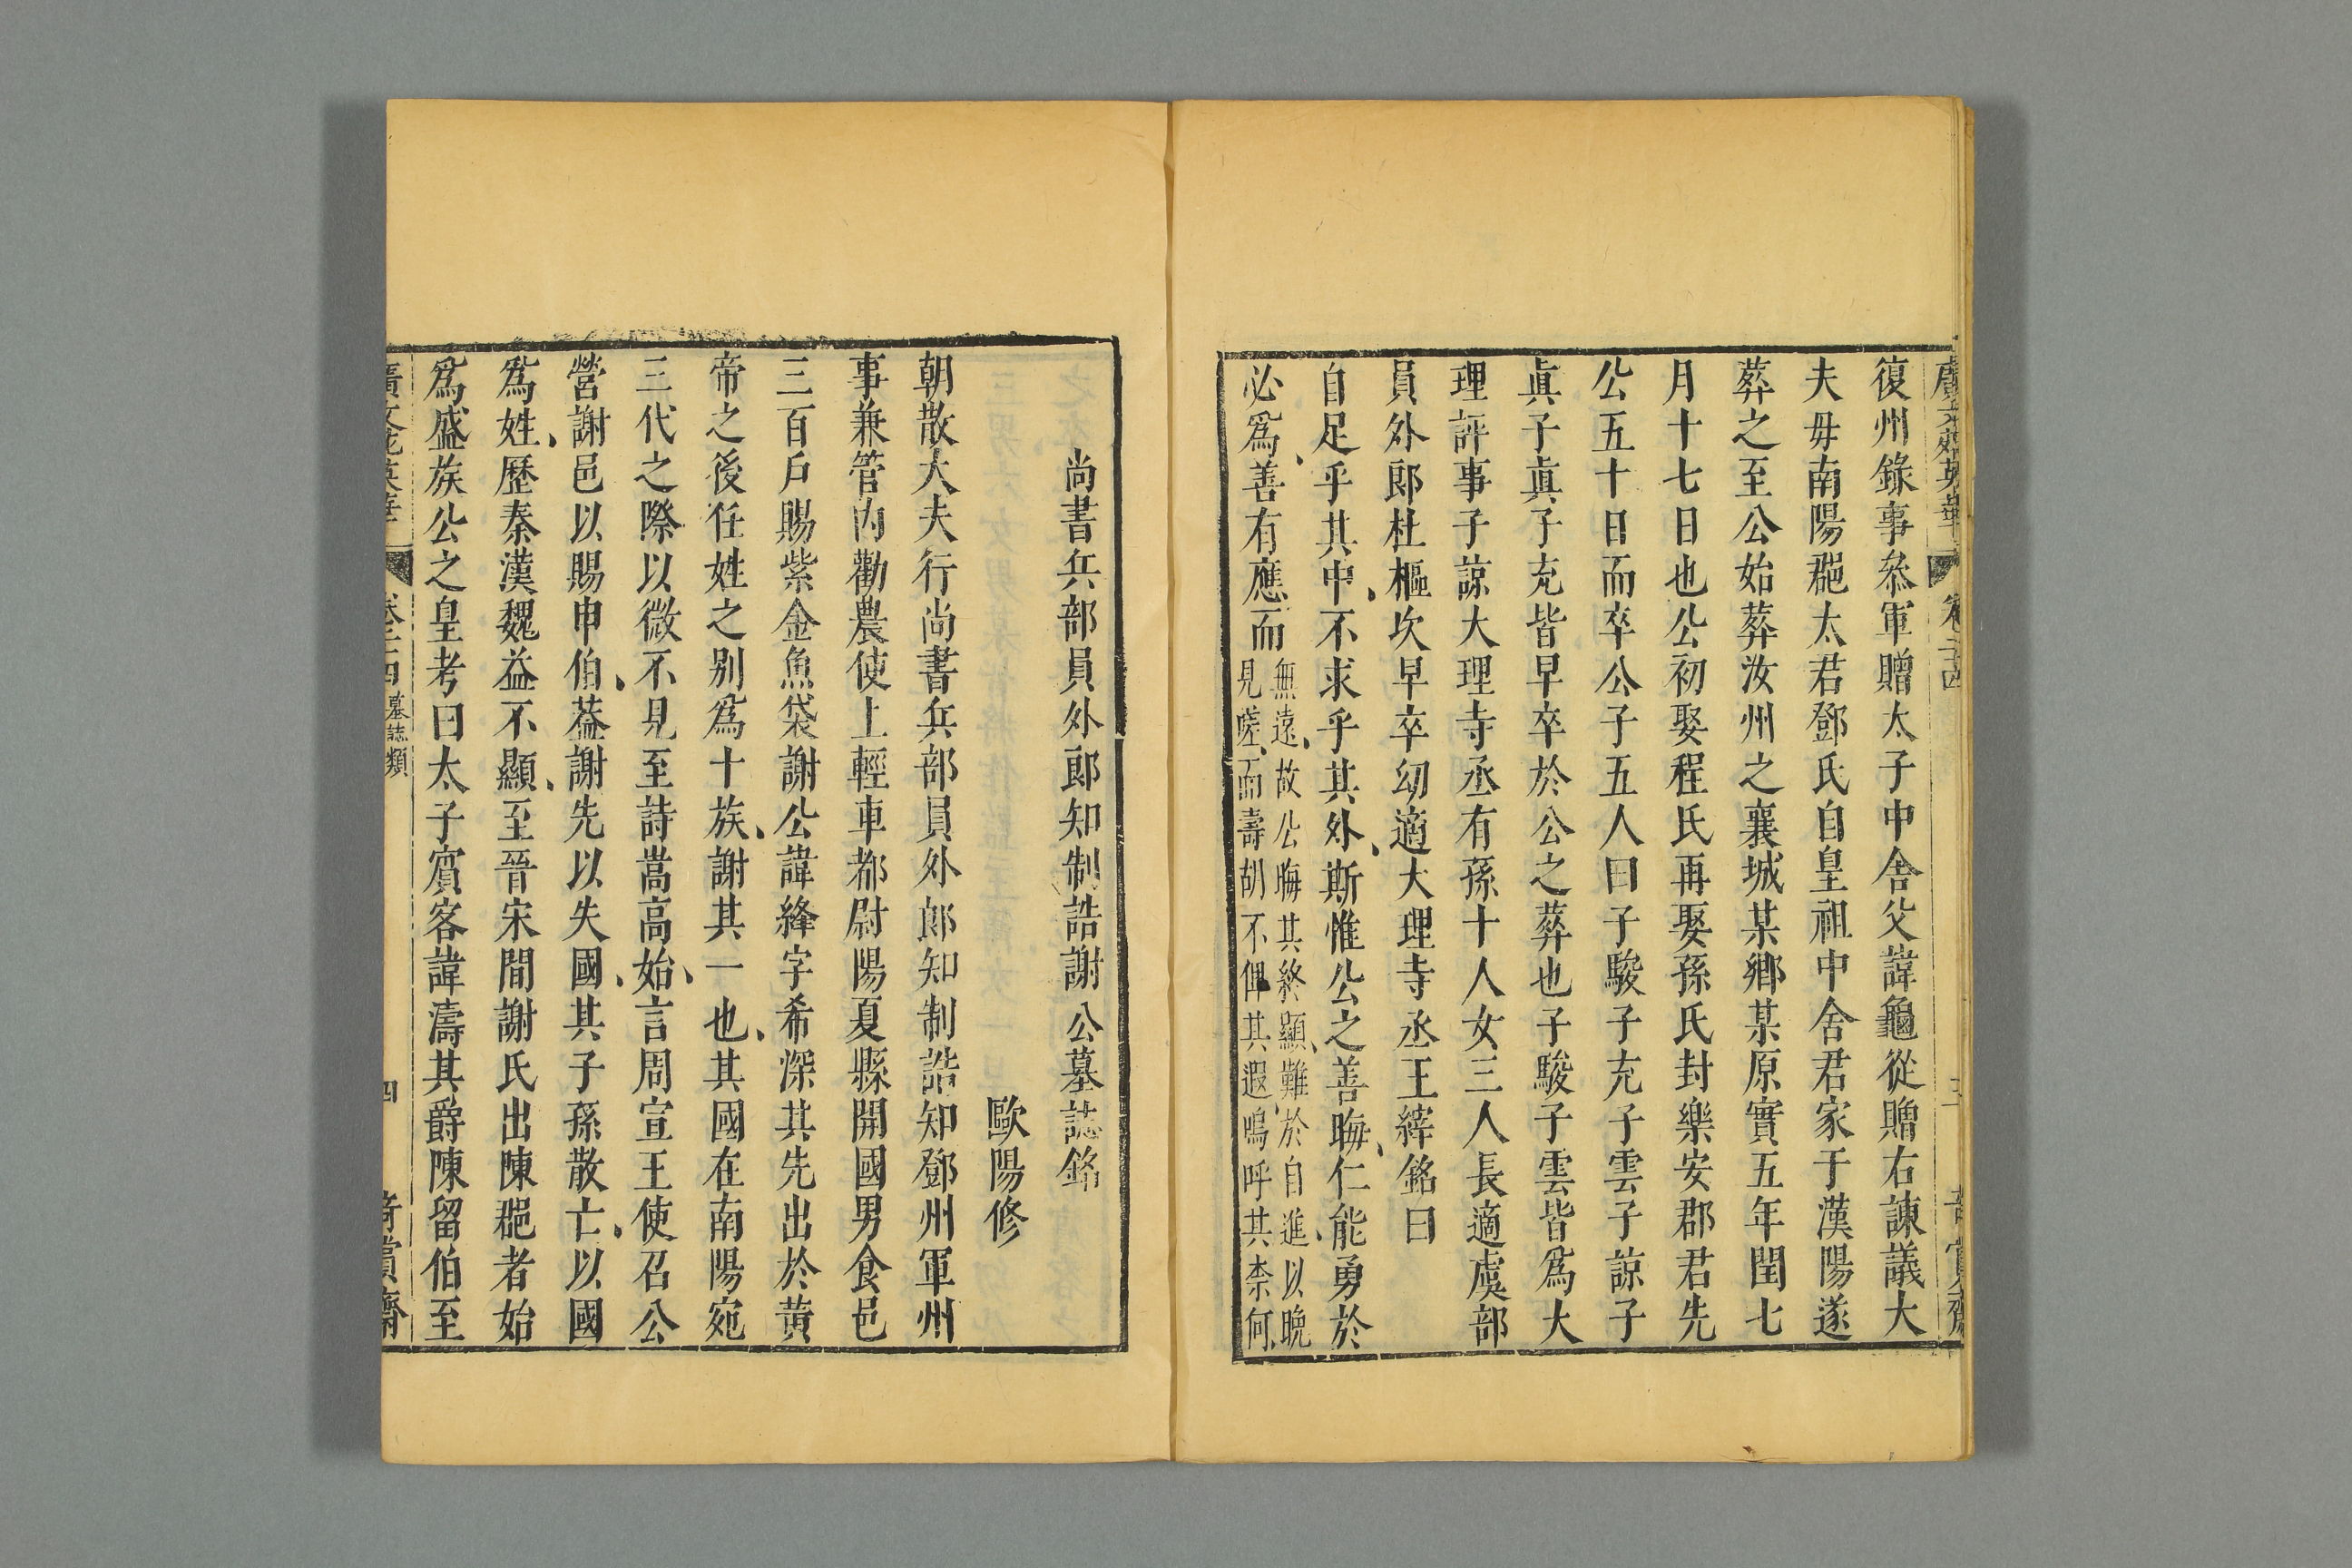 復州錄事叅軍贈太子中舍父諱龜從贈右諫議大
夫毋南陽郡太君鄧氏自皇祖中舍君家于漢陽遂
葬之至公始葬汝州之襄城某鄉某原實五年閏七
月十七日也公初娶程氏再娶孫氏封樂安郡君先
公五十日而卒公子五人曰子駿子充子雲子諒子
眞子眞子充皆早卒於公之葬也子駿子雲皆爲大
理評事子諒大理寺丞有孫十人女三人長適虞部
員外郎杜樞次早卒幼適大理寺丞王繹銘曰
自足乎其中不求乎其外斯惟公之善晦仁能勇於
必爲善有應而
無遠故公晦其終顯難於自進以晚
見嗟而壽胡不俾其遐嗚呼其柰何
尚書兵部員外郎知制誥謝公墓誌銘
歐陽修
朝散大夫行尚書兵部員外郎知制誥知鄧州軍州
事兼管內勸農使上輕車都尉陽夏縣開國男食邑
三百戶賜紫金魚袋謝公諱絳字希深其先出於黃
帝之後任姓之别爲十族謝其一也其國在南陽宛
三代之際以微不見至詩嵩高始言周宣王使召公
營謝邑以賜申伯葢謝先以失國其子孫散亡以國
爲姓歷秦漢魏益不顯至晉宋間謝氏出陳郡者始
爲盛族公之皇考曰太子賓客諱濤其爵陳留伯至
廣文苑英華
卷二四
墓誌類
四
奇賞齋